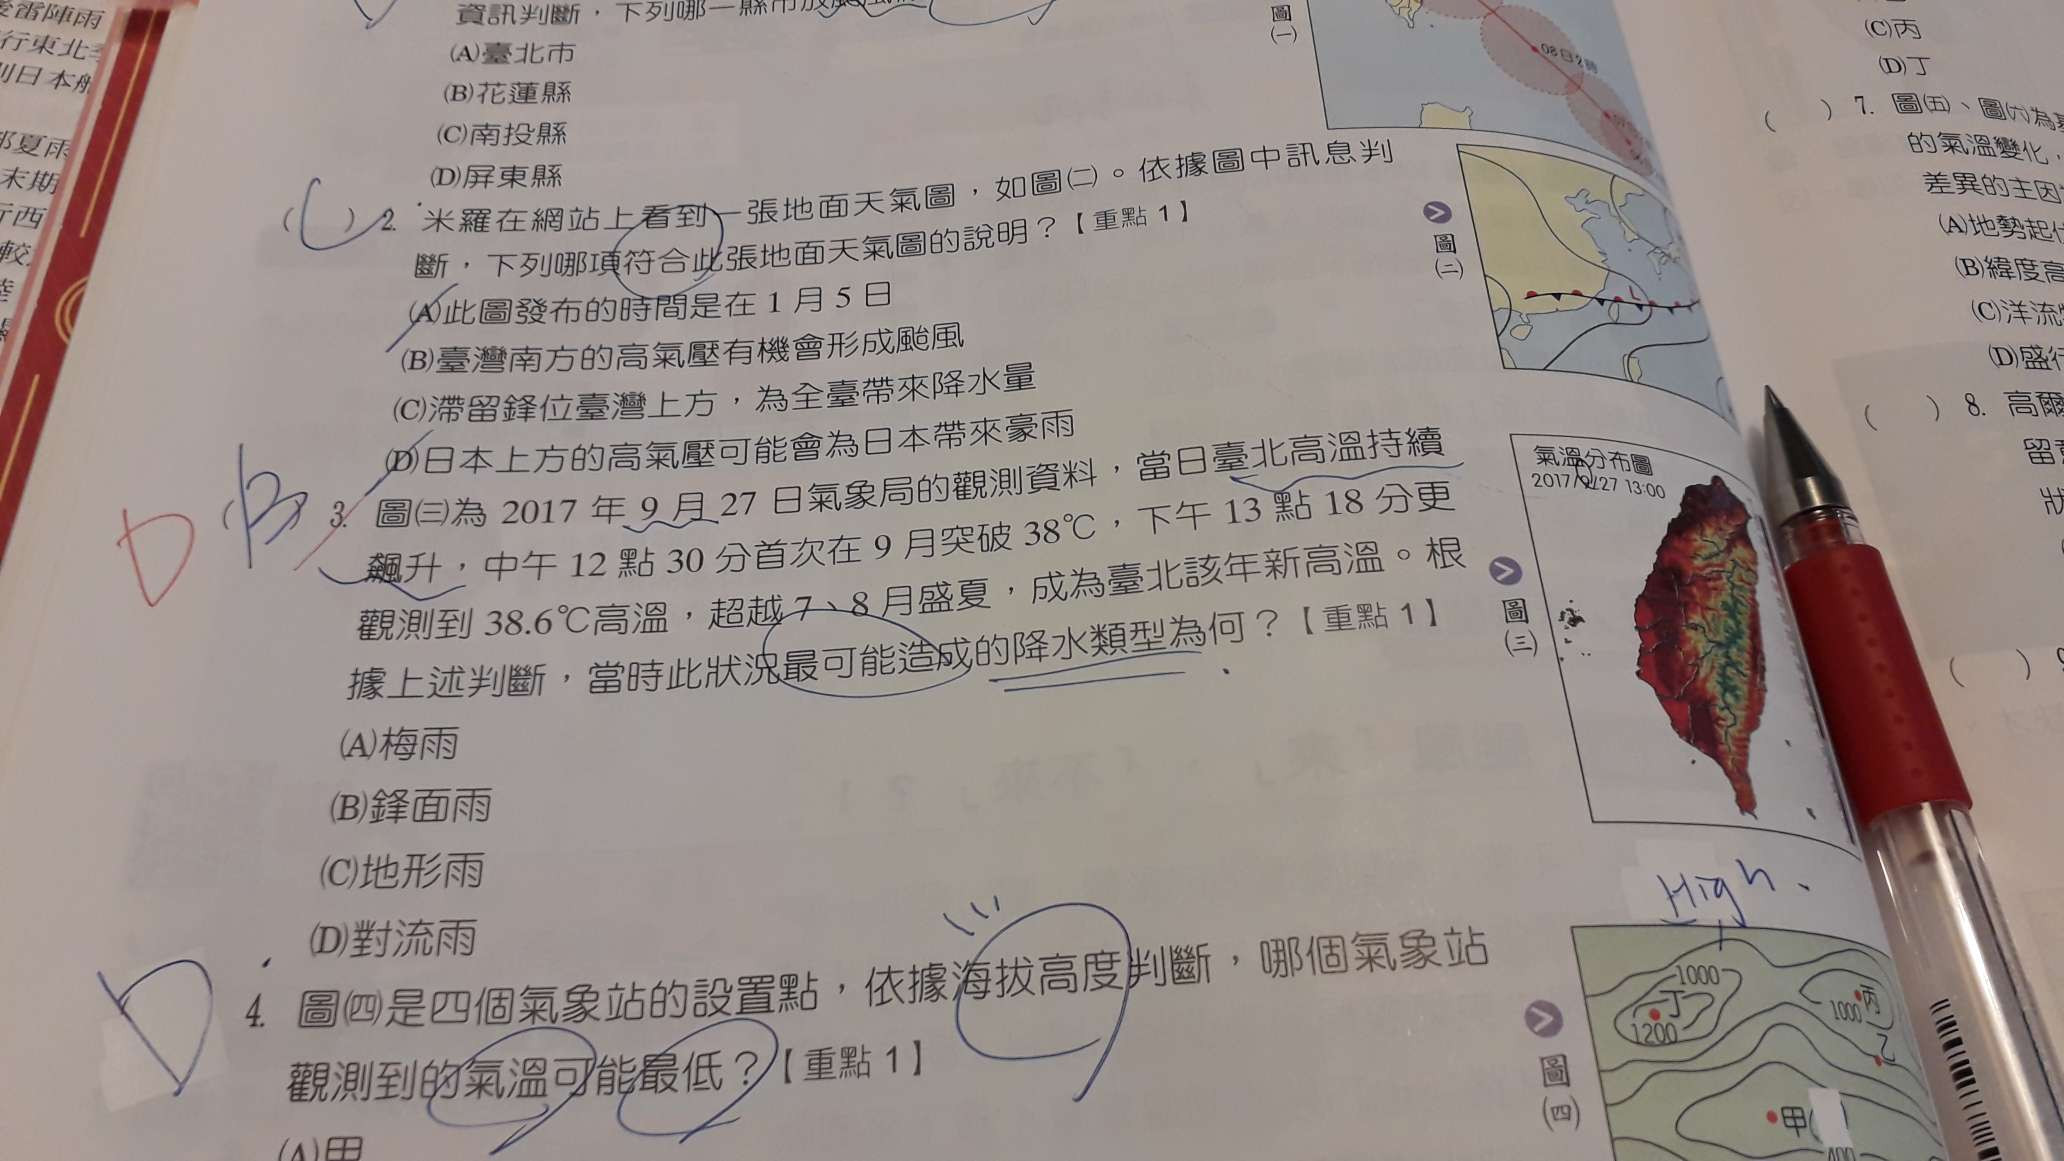 資訊判斷，下列哪一縣市放颱風
(A)臺北市
(B)花蓮縣
(C)南投縣
(D)屏東縣
( C ) 2. 米羅在網站上看到一張地面天氣圖，如圖㈡。依據圖中訊息判
斷，下列哪項符合此張地面天氣圖的說明？【重點 1】
(A)此圖發布的時間是在 1 月 5 日
(B)臺灣南方的高氣壓有機會形成颱風
(C)滯留鋒位臺灣上方，為全臺帶來降水量
(D)日本上方的高氣壓可能會為日本帶來豪雨
D ( B ) 3. 圖㈢為 2017 年 9 月 27 日氣象局的觀測資料，當日臺北高溫持續
飆升，中午 12 點 30 分首次在 9 月突破 38℃，下午 13 點 18 分更
觀測到 38.6℃高溫，超越 7、8 月盛夏，成為臺北該年新高溫。根
據上述判斷，當時此狀況最可能造成的降水類型為何？【重點 1】
(A)梅雨
(B)鋒面雨
(C)地形雨
(D)對流雨
D 4. 圖㈣是四個氣象站的設置點，依據海拔高度判斷，哪個氣象站
觀測到的氣溫可能最低？【重點 1】
(A)甲
圖㈠
08日2時
圖㈡
L
圖㈢
氣溫分布圖
2017/9/27 13:00
High.
圖㈣
1000
丁
1200
丙
1000
乙
甲
400
後雷陣雨
行東北季
別日本
夏雨
末期
行西
較
(C)丙
(D)丁
( ) 7. 圖㈤、圖㈥為
的氣溫變化，
差異的主因
(A)地勢起伏
(B)緯度高
(C)洋流
(D)盛行
( ) 8. 高爾
留
狀
( ) 9